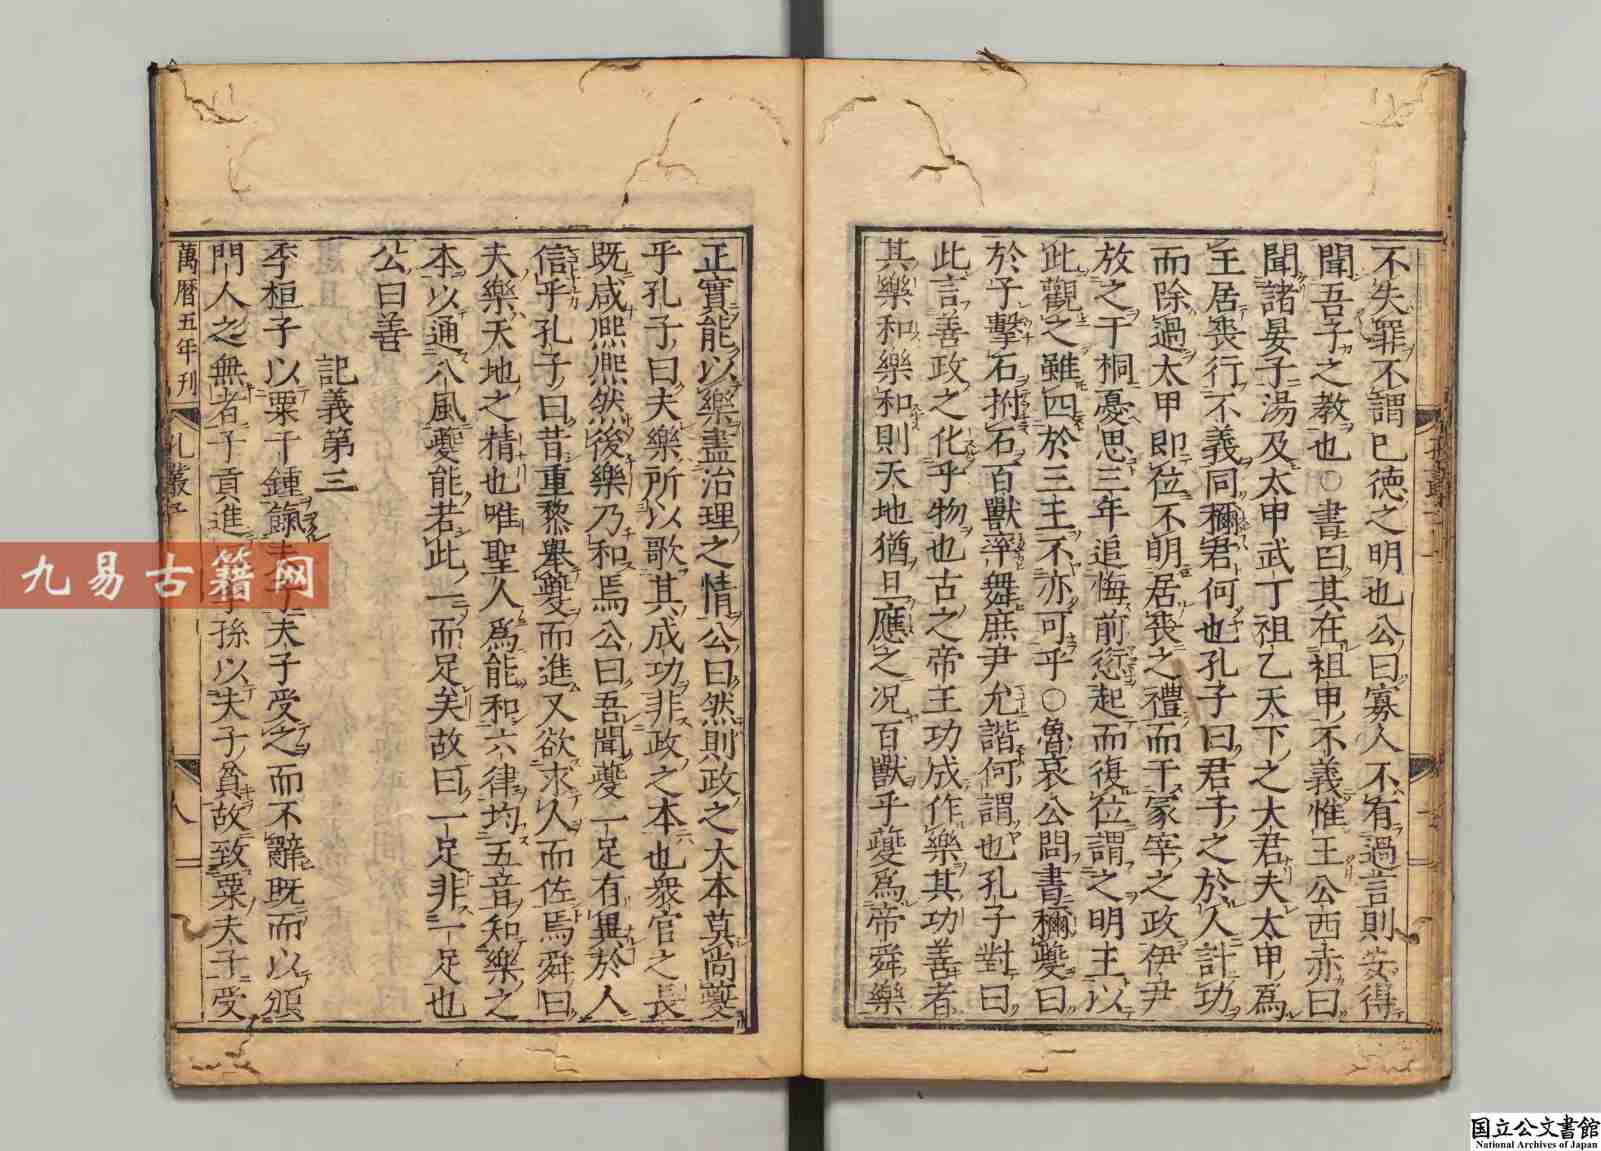 不失罪不謂已德之明也公曰寡人不有過言則安得
聞吾子之教也○書曰其在祖甲不義惟王公西赤曰
聞諸晏子湯及太甲武丁祖乙天下之大君夫太甲爲
王居喪行不義同稱君何也孔子曰君子之於人計功
而除過太甲即位不明居喪之禮而干冢宰之政伊尹
放之于桐憂思三年追悔前愆起而復位謂之明王以
此觀之雖四於三王不亦可乎○魯哀公問書稱夔曰
於予擊石拊石百獸率舞庶尹允諧何謂也孔子對曰
此言善政之化乎物也古之帝王功成作樂其功善者
其樂和樂和則天地猶且應之况百獸乎夔爲帝舜樂
正實能以樂盡治理之情公曰然則政之大本莫尚夔
乎孔子曰夫樂所以歌其成功非政之本也衆官之長
既咸熈熈然後樂乃和焉公曰吾聞夔一足有異於人
信乎孔子曰昔重黎舉夔而進又欲求人而佐焉舜曰
夫樂天地之精也唯聖人爲能和六律均五音知樂之
本以通八風夔能若此一而足矣故曰一足非一足也
公曰善
記義第三
季桓子以粟千鍾餼夫子夫子受之而不辭既而以頒
門人之無者子貢進孫以夫子貧故致粟夫子受
萬曆五年刊
孔叢
八
九易古籍网
国立公文書館
National Archives of Japan